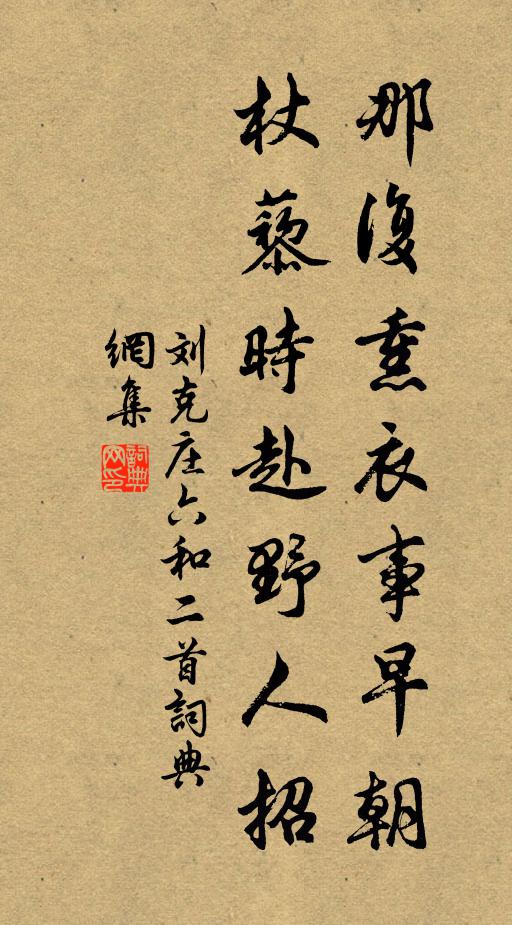 那復熏衣事早朝
杖藜時赴野人招
刘克庄六和二首詞典
網集
詞典
网印